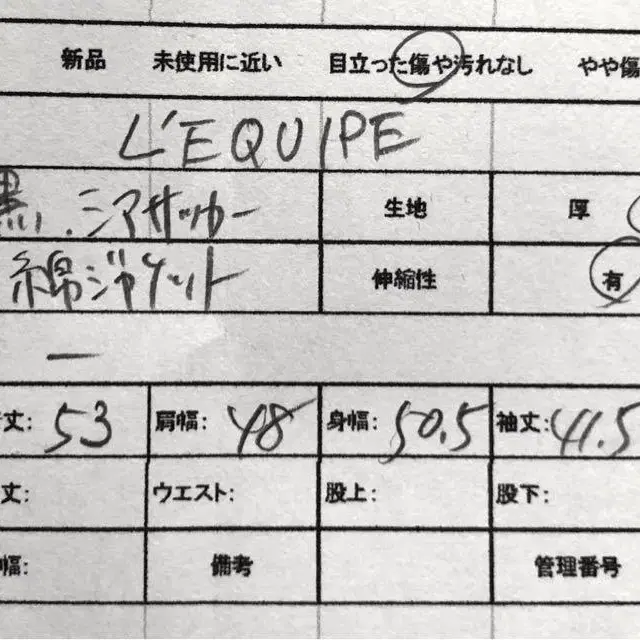 新品 未使用に近い 目立った傷や汚れなし やや傷
L'EQUIPE
黒.シアサッカー 生地 厚
綿ジャケット 伸縮性 有
ー
丈: 53 肩幅: 48 身幅: 50.5 袖丈: 41.5
丈: ウエスト: 股上: 股下:
幅: 備考 管理番号